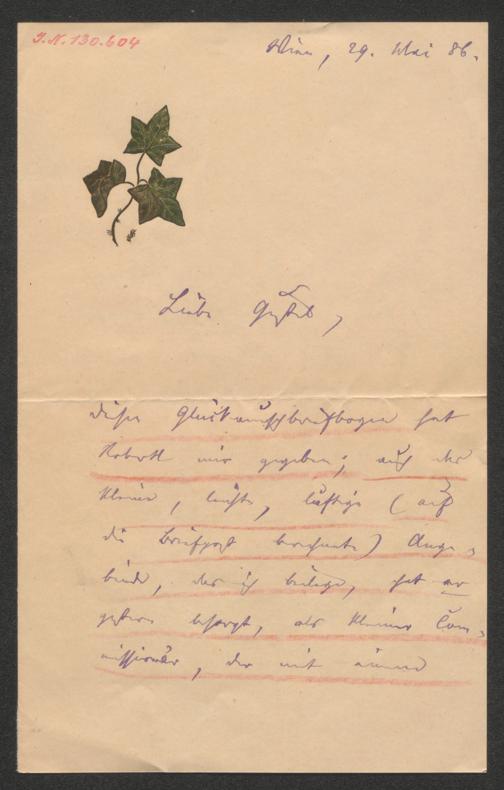 J.N. 130.604
Wien, 29. Mai 86.
Liebe
dieser Glückwunschbriefbogen hat
Robertl mir gegeben; auch das
kleine, leichte, luftige (auf
die Briefpost berechnete) Ange-
binde, das ich beilege, hat er
gestern besorgt, als kleiner Com-
missionär, der mit